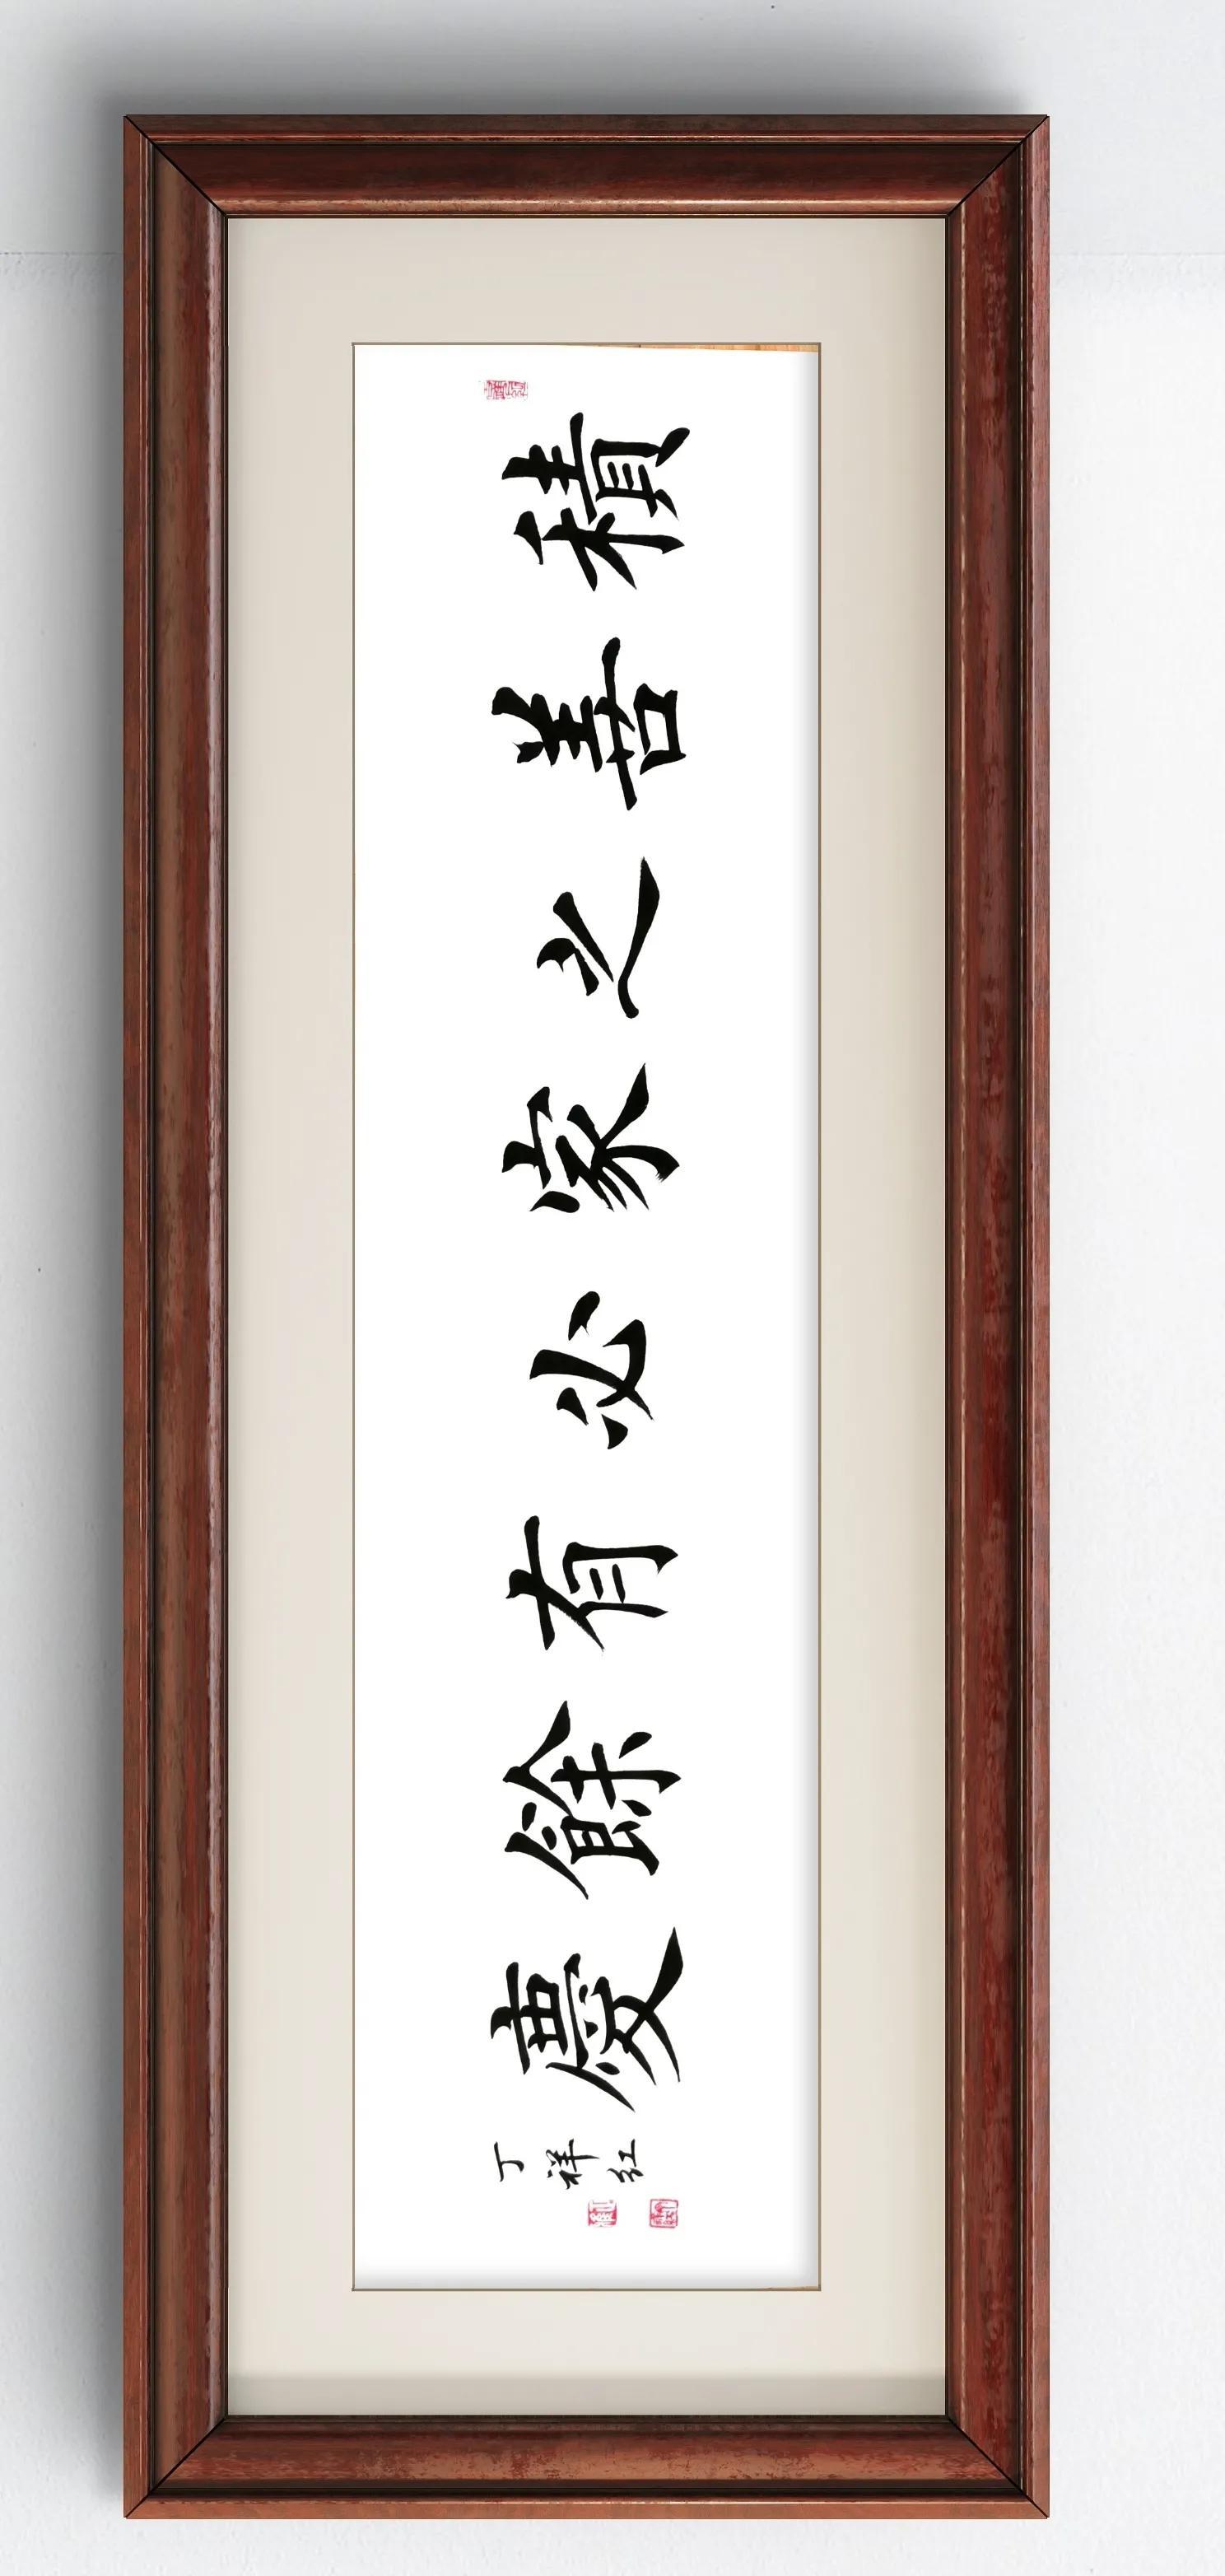 積善之家必有餘慶
丁祥红